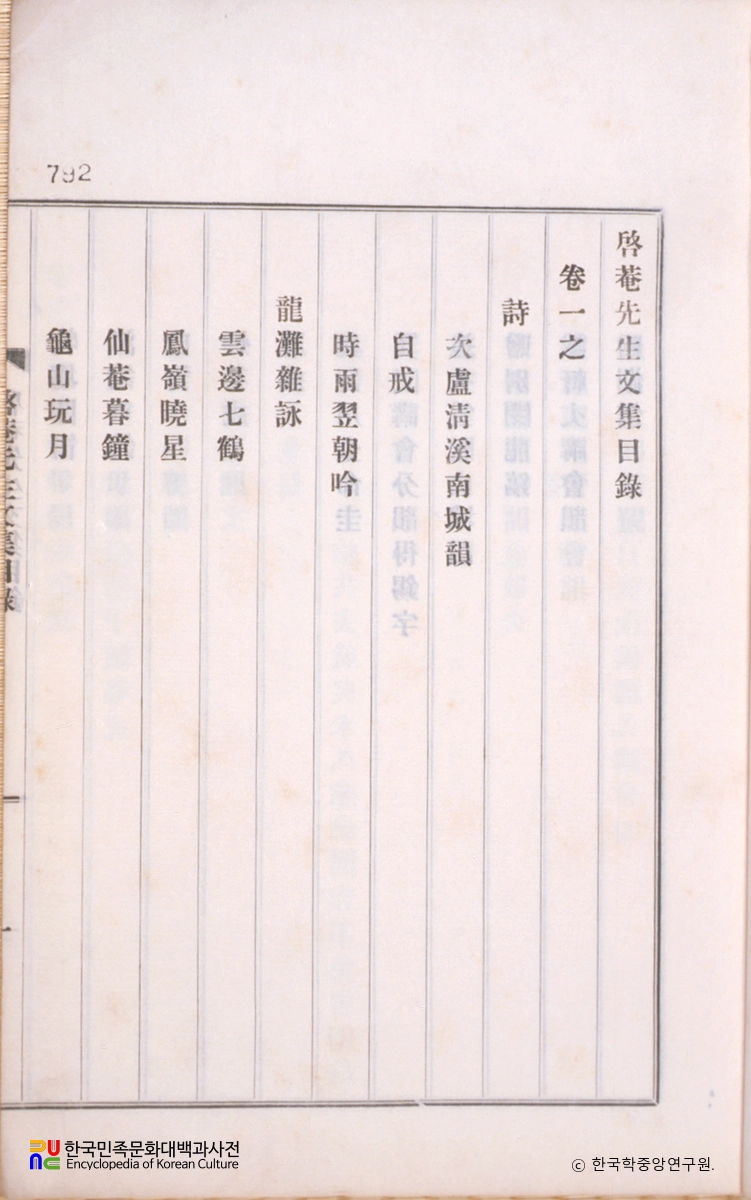 792
啓菴先生文集目錄
卷一之
詩
次盧淸溪南城韻
自戒
時雨翌朝吟
龍灘雜詠
雲邊七鶴
鳳嶺曉星
仙菴暮鐘
龜山玩月
啓菴先生文集目錄
一
한국민족문화대백과사전
Encyclopedia of Korean Culture
ⓒ 한국학중앙연구원.